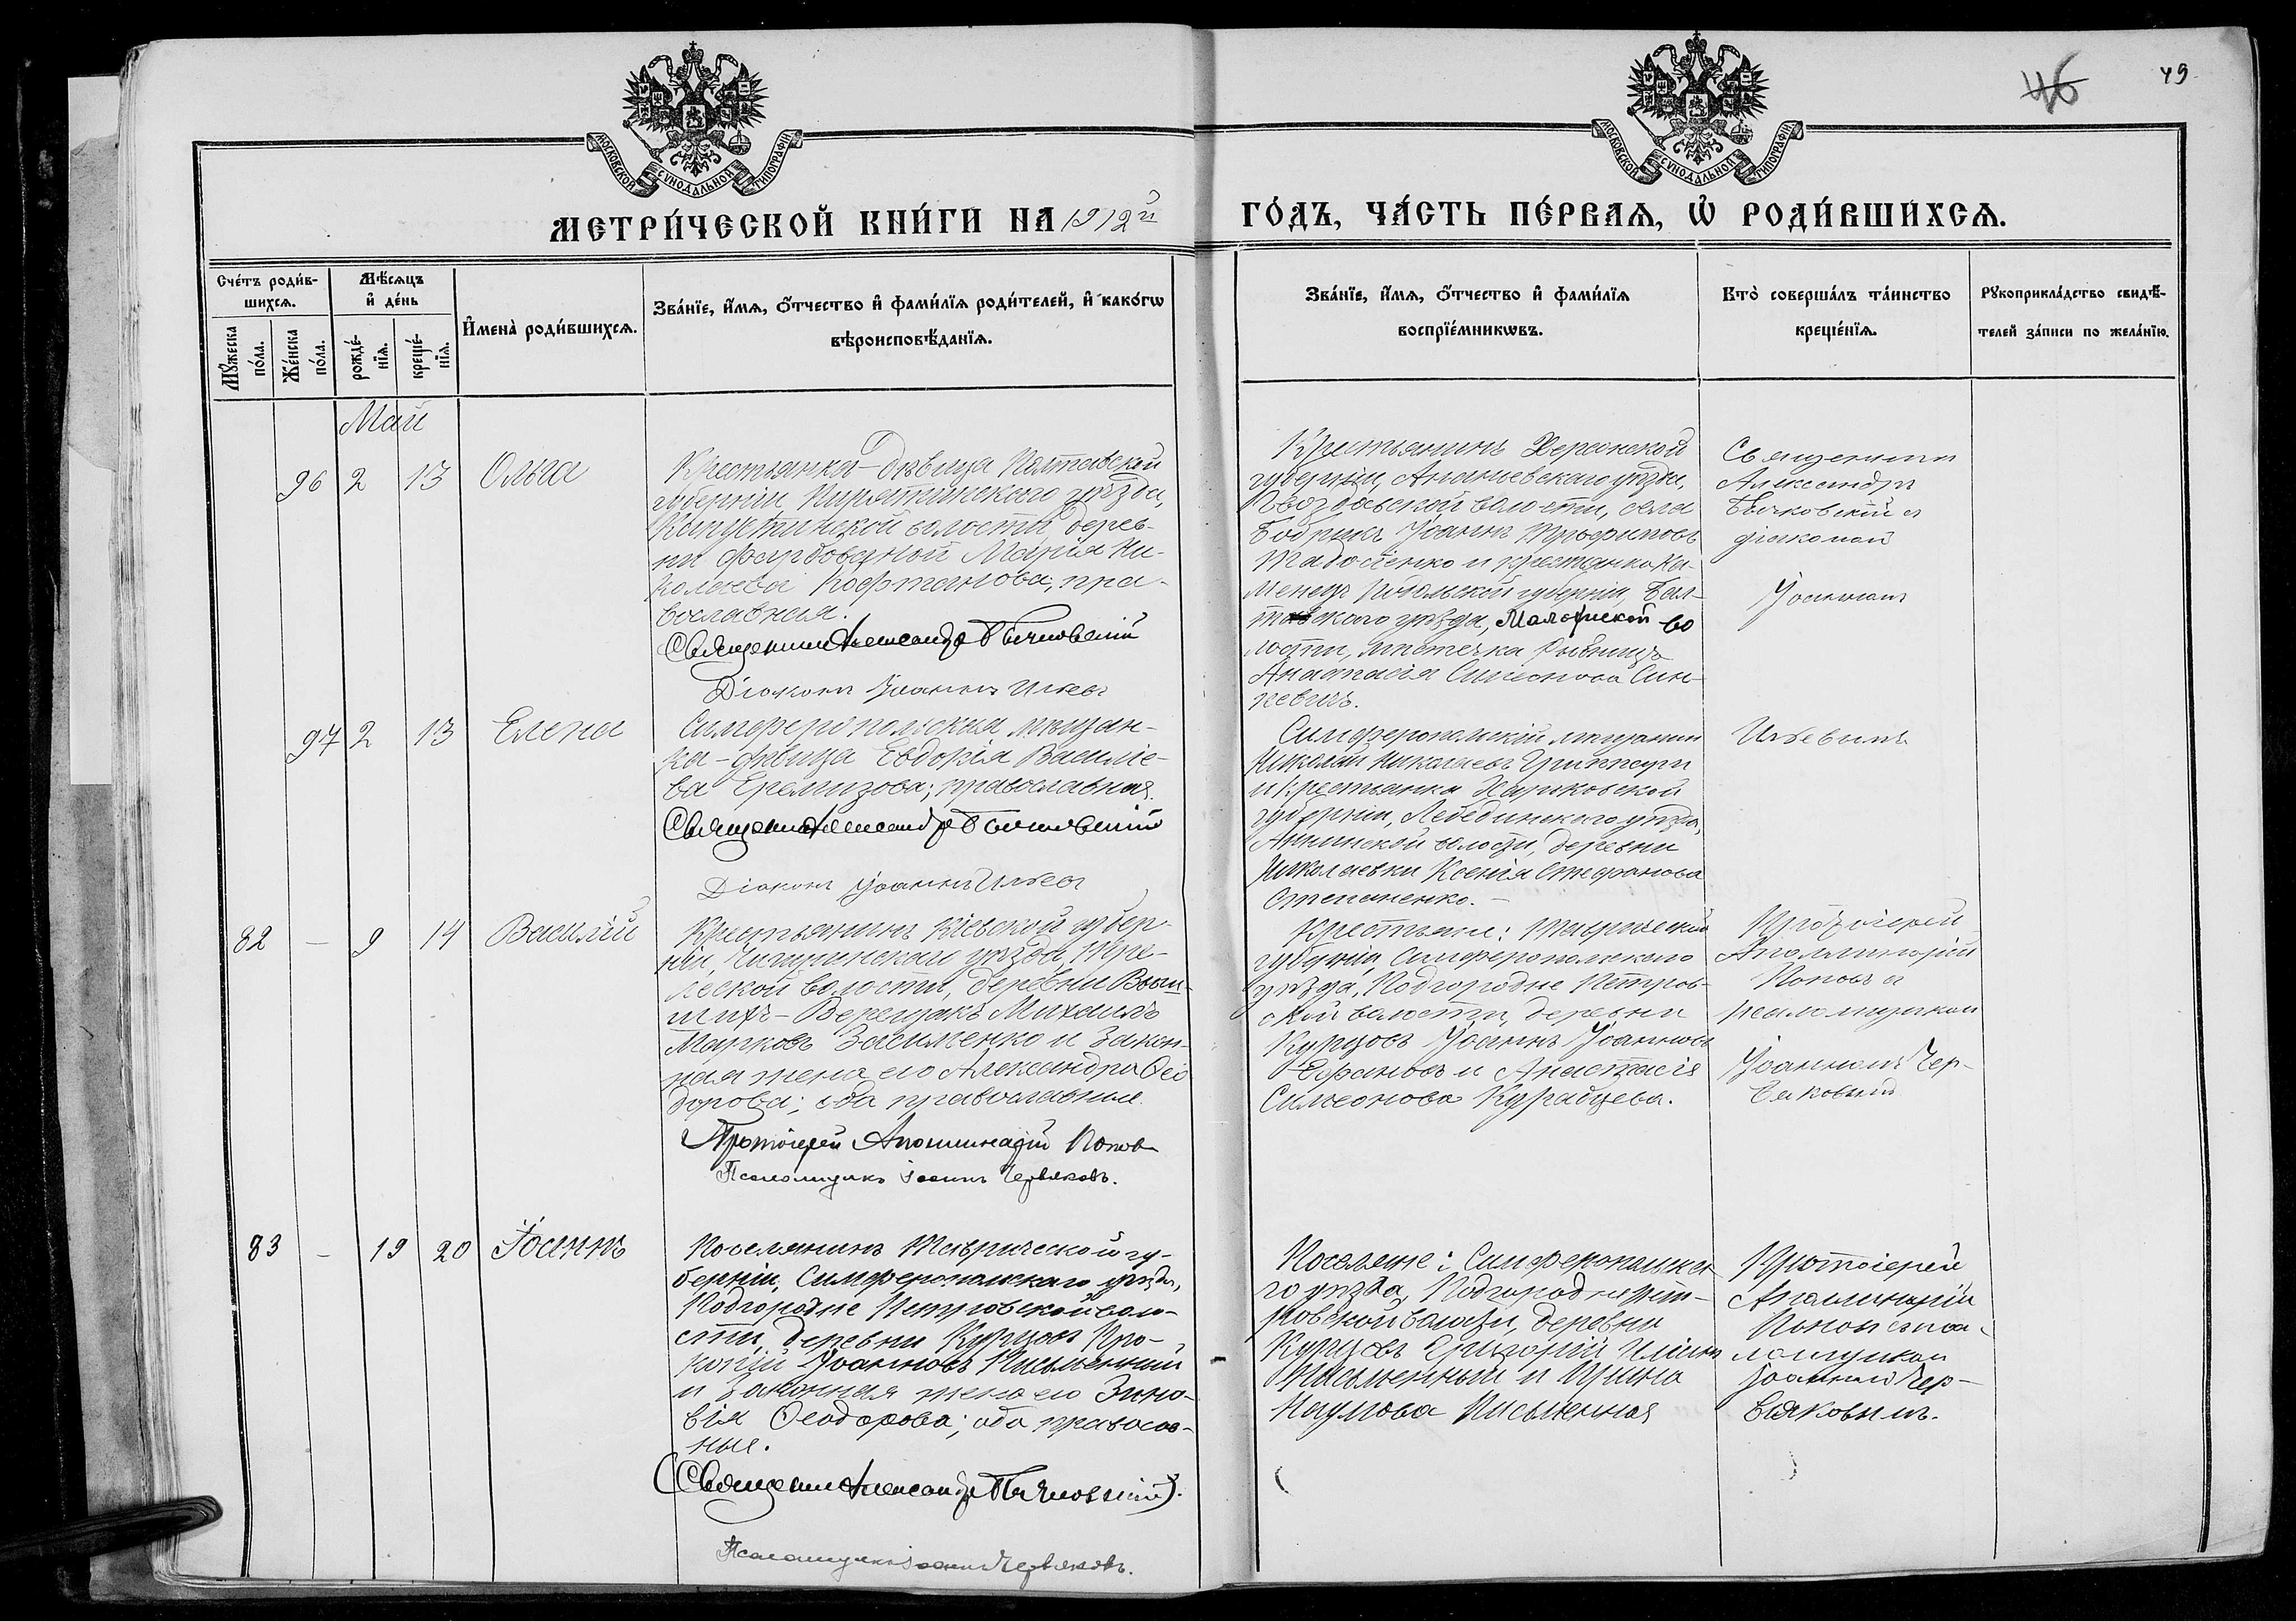 46
49
МОСКОВСКОЙ СУНОДАЛЬНОЙ ТИПОГРАФІИ
МОСКОВСКОЙ СУНОДАЛЬНОЙ ТИПОГРАФІИ
МЕТРИ́ЧЕСКОЙ КНИ́ГИ НА 1912й
ГО́ДЪ, ЧА́СТЬ ПЕ́РВАЯ, Ѡ҆ РОДИ́ВШИХСЯ.
Сче́тъ роди́в-
шихся.
Мꙋ́жеска
по́ла.
Же́нска
по́ла.
Мѣ́сяцъ
и҆ де́нь
рожде́-
нїѧ.
креще́-
нїѧ.
И҆мена̀ роди́вшихсѧ.
Зва́нїе, и҆́мѧ, ѻ҆́тчество и҆ фами́лїѧ роди́телей, и҆ како́гѡ
вѣроисповѣ́данїѧ.
Зва́нїе, и҆́мѧ, ѻ҆́тчество и҆ фами́лїѧ
воспрїе́мникѡвъ.
Кто̀ соверша́лъ та́инство
креще́нїѧ.
Рꙋкоприкла́дство свидѣ́-
телей за́писи по жела́нїю.
Май
96 2 13 Ольга
Крестьянка-дѣвица Полтавской
губерніи Пирятинскаго уѣзда,
Капустинской волости, дерев-
ни Марія Ни-
колаева Кофтанова, пра-
вославная.
Священникъ Александръ Бычковскій
Діаконъ Іоаннъ Ильевъ
Крестьянинъ Херсонской
губерніи, Ананьевскаго уѣзда,
волости, села
Бобрикъ Іоаннъ
и крестьянка Ка-
менецъ Подольской губерніи, Бал-
тскаго уѣзда, во
лости, мѣстечка Рыбницъ
Анастасія Симеонова Син-
кевичъ.
Священникъ
Александръ
Бычковскій съ
діакономъ
Іоанномъ
97 2 13 Елена
Симферопольская мѣщан-
ка-дѣвица Евдокія Василіе-
ва Еремизова; православная.
Священникъ Александръ Бычковскій
Діаконъ Іоаннъ Ильевъ
Симферопольскій мѣщанинъ
Николай Николаевъ
и крестьянка Харьковской
губерніи, Лебединскаго уѣзда,
Аннинской волости, деревни
Николаевки Ксенія Стефанова
Степаненко.
Ильевымъ
82 – 9 14 Василій
Крестьянинъ Кіевской губер-
ніи, Чигиринскаго уѣзда,
волости, деревни Выш-
шихъ-Верещакъ Михаилъ
Марковъ Засименко и закон-
ная жена его Александра Ѳео
дорова; оба православные.
Протоіерей Аполлинарій Поповъ
Псаломщикъ Іоаннъ Червяковъ.
Крестьяне: Таврической
губерніи, Симферопольскаго
уѣзда, Подгородне Петров-
ской волости, деревни
Курцовъ Іоаннъ Іоанновъ
и Анастасія
Симеонова
Протоіерей
Аполлинарій
Поповъ съ
псаломщикомъ
Іоанномъ Чер-
вяковымъ
83 – 19 20 Іоаннъ
Поселянинъ Таврической гу-
берніи, Симферопольскаго уѣзда,
Подгородне Петровской воло-
сти, деревни Курцовъ Про-
копій Іоанновъ Письменный
и законная жена его Зино-
вія Ѳеодорова; оба православ-
ные.
(Священникъ Александръ Бычковскій).
Псаломщикъ Іоаннъ Червяковъ.
Поселяне: Симферопольска
го уѣзда, Подгородне Пет-
ровской волости, деревни
Курцовъ Григорій Ильинъ
Письменный и Ирина
Наумова Письменная
Протоіерей
Аполлинарій
Поповъ съ пса-
ломщикомъ
Іоанномъ Чер-
вяковымъ.